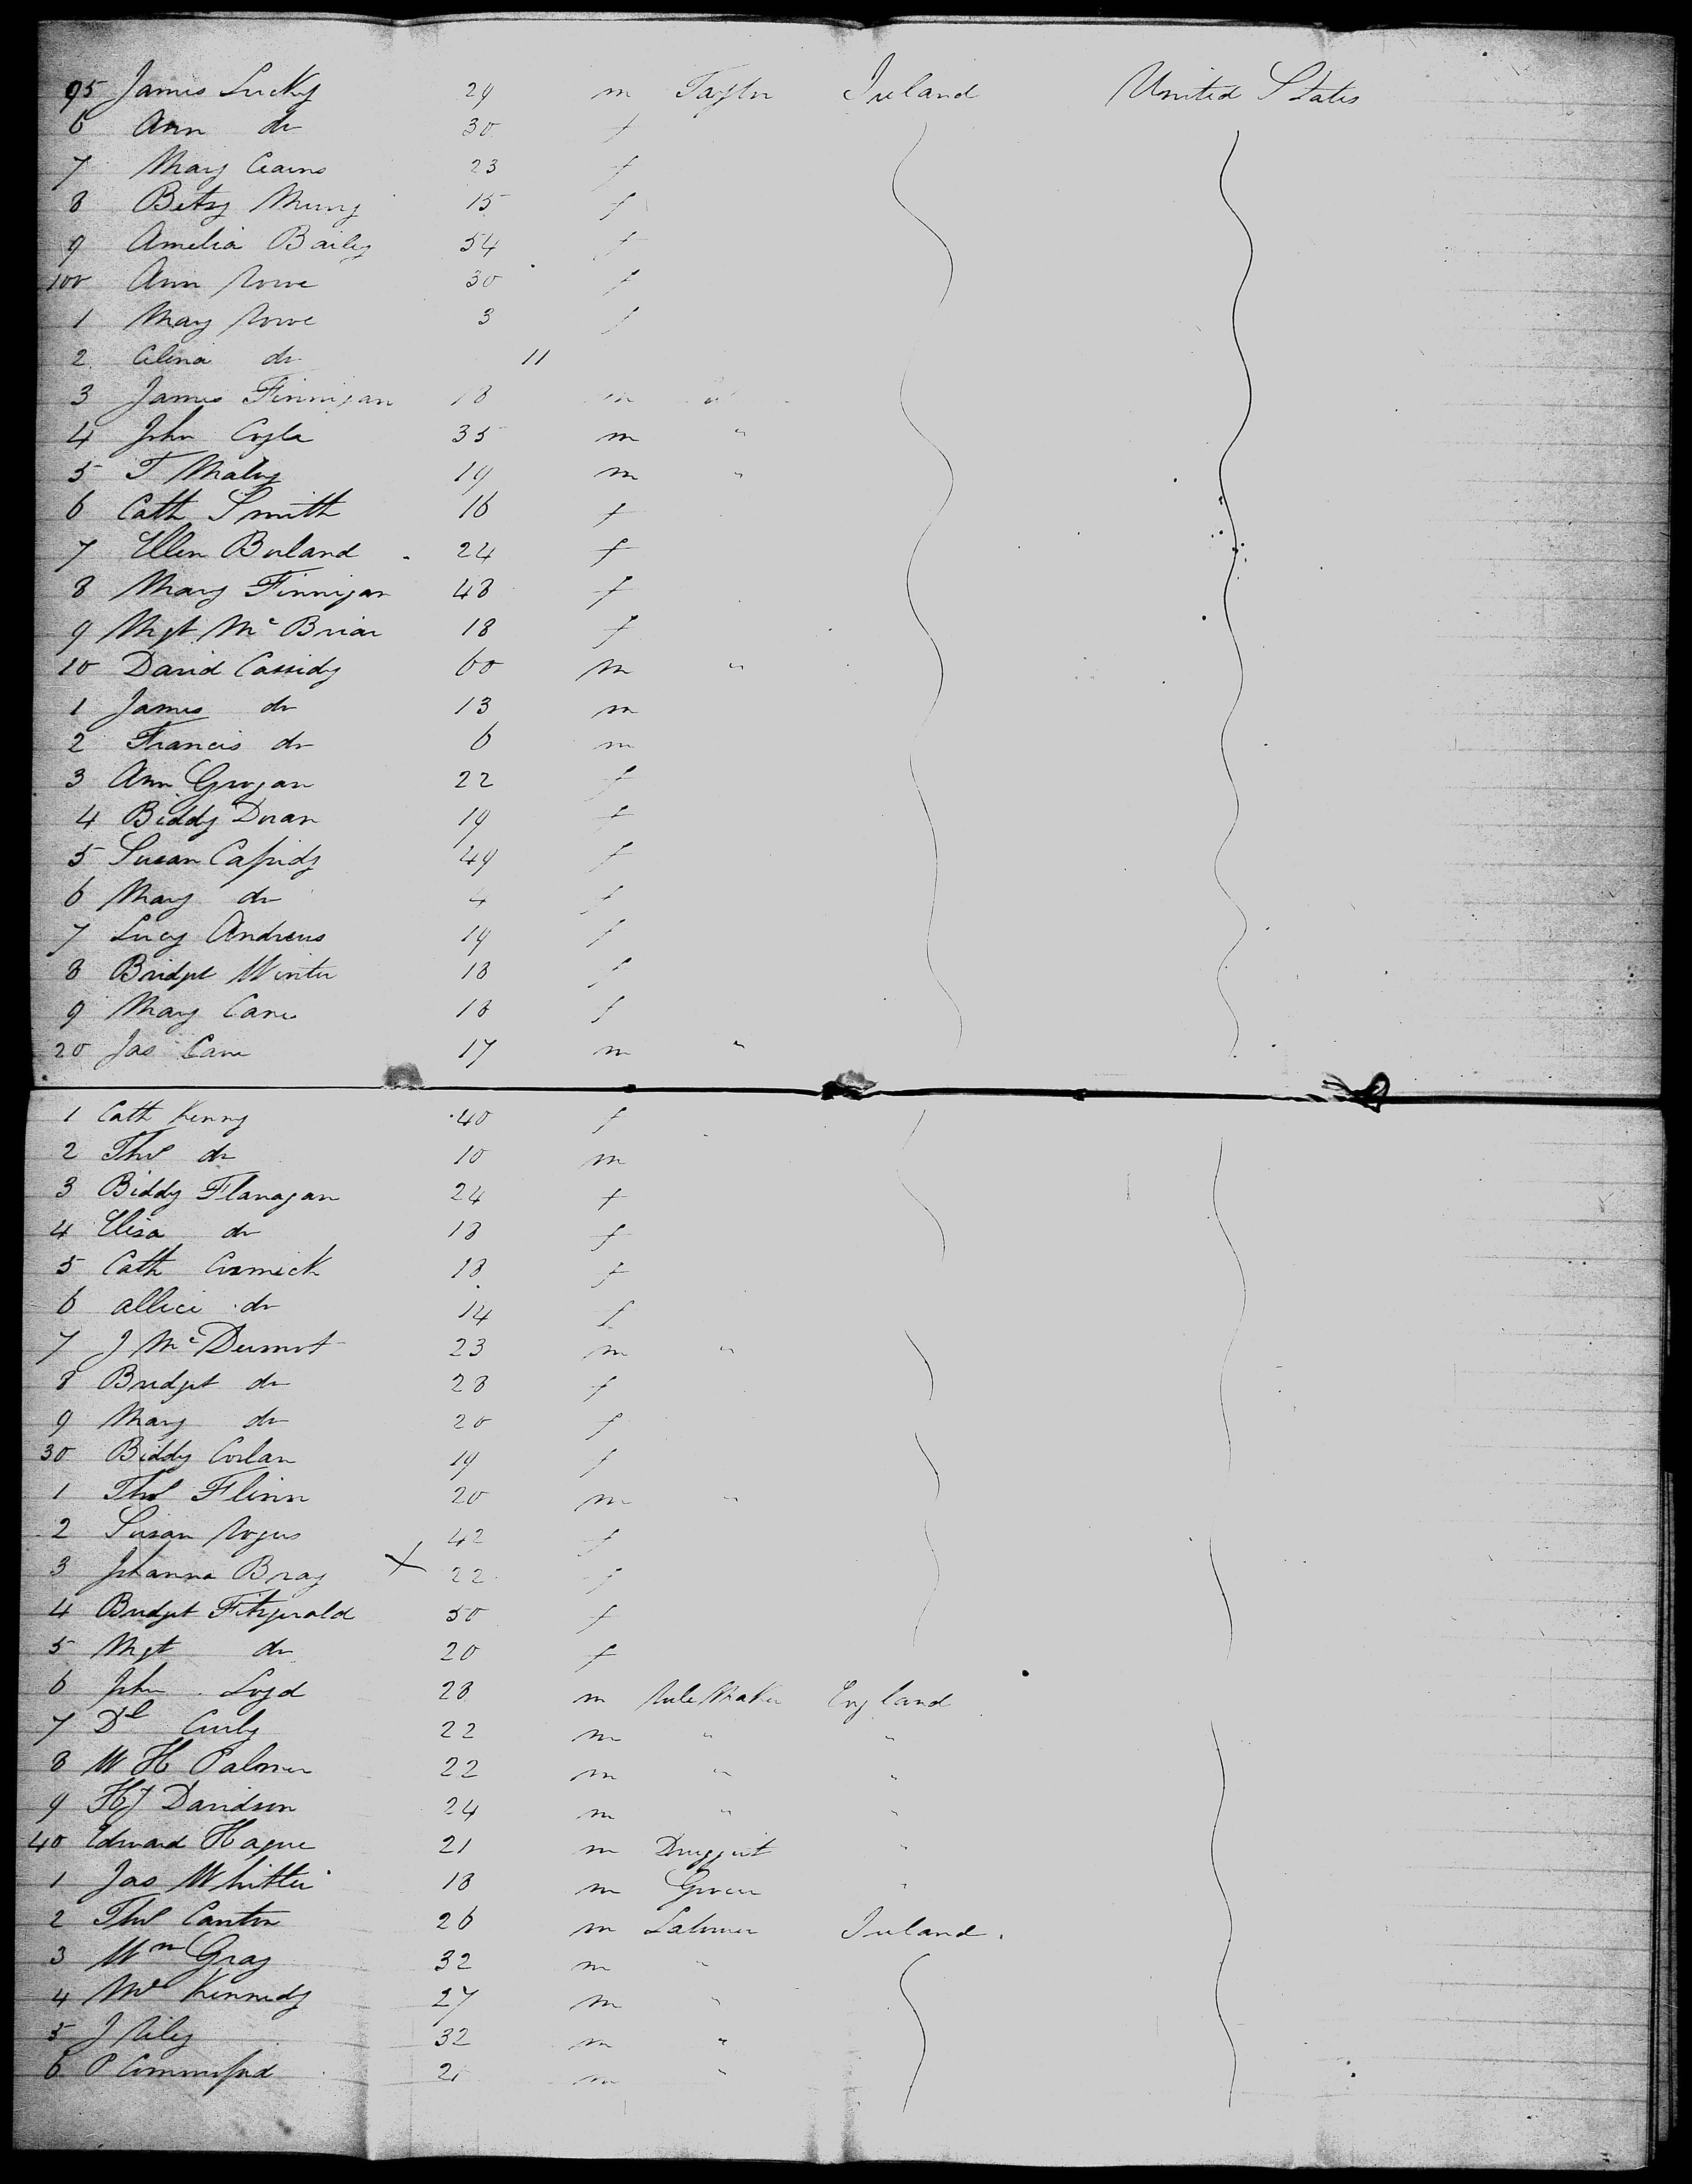 95 James Lucky 29 m Taylor Ireland United States
6 Ann do 30 f
7 Mary Cairns 23 f
8 Betsy Murry 15 f
9 Amelia Baily 54 f
100 Ann Rowe 30 f
1 Mary Rowe 3 f
2 Celena do 11
3 James Finnigan 18 m
4 John Coyle 35 m "
5 T Malvy 19 m "
6 Cath Smith 16 f
7 Ellen Borland 24 f
8 Mary Finnigan 48 f
9 Mgt McBriar 18 f
10 David Cassidy 60 m "
1 James do 13 m
2 Francis do 6 m
3 Ann Grogan 22 f
4 Biddy Doran 19 f
5 Susan Cassidy 49 f
6 Mary do 4 f
7 Lucy Andrews 19 f
8 Bridget Winter 18 f
9 Mary Cane 18 f
20 Jas Cane 17 m "
1 Cath Kenny 40 f
2 Thos do 10 m
3 Biddy Flanagan 24 f
4 Eliza do 18 f
5 Cath Cormick 18 f
6 Allice do 14 f
7 J McDermot 23 m "
8 Bridget do 28 f
9 Mary do 20 f
30 Biddy Conlan 19 f
1 Thos Flinn 20 m "
2 Susan Rogers 42 f
3 Johanna Bray X 22 f
4 Bridget Fitzgerald 50 f
5 Mgt do 20 f
6 John Loyd 28 m Rule Maker England
7 Dl Curly 22 m " "
8 W H Palmer 22 m " "
9 H J Davidson 24 m " "
40 Edward Hague 21 m Druggist "
1 Jas Whitter 18 m Grocer "
2 Thos Canton 26 m Labourer Ireland.
3 Wm Gray 32 m "
4 Ml Kennedy 27 m "
5 J Riley 32 m "
6 P Commisford 21 m "